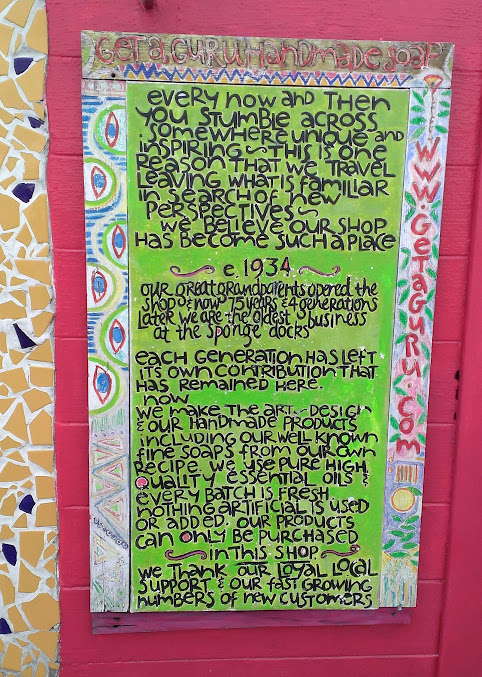 GETAGURU HANDMADE SOAP
EVERY NOW AND THEN
YOU STUMBLE ACROSS
SOMEWHERE UNIQUE AND
INSPIRING ~ THIS IS ONE
REASON THAT WE TRAVEL
LEAVING WHAT IS FAMILIAR
IN SEARCH OF NEW
PERSPECTIVES ~
WE BELIEVE OUR SHOP
HAS BECOME SUCH A PLACE
e. 1934
OUR GREAT GRANDPARENTS OPENED THE
SHOP & NOW 75 YEARS & 4 GENERATIONS
LATER WE ARE THE OLDEST BUSINESS
AT THE SPONGE DOCKS
EACH GENERATION HAS LEFT
ITS OWN CONTRIBUTION THAT
HAS REMAINED HERE.
NOW
WE MAKE THE ART ~ DESIGN
& OUR HANDMADE PRODUCTS
INCLUDING OUR WELL KNOWN
FINE SOAPS FROM OUR OWN
RECIPE. WE USE PURE HIGH
QUALITY ESSENTIAL OILS &
EVERY BATCH IS FRESH
NOTHING ARTIFICIAL IS USED
OR ADDED. OUR PRODUCTS
CAN ONLY BE PURCHASED
IN THIS SHOP.
WE THANK OUR LOYAL LOCAL
SUPPORT & OUR FAST GROWING
NUMBERS OF NEW CUSTOMERS
WWW.GETAGURU.COM